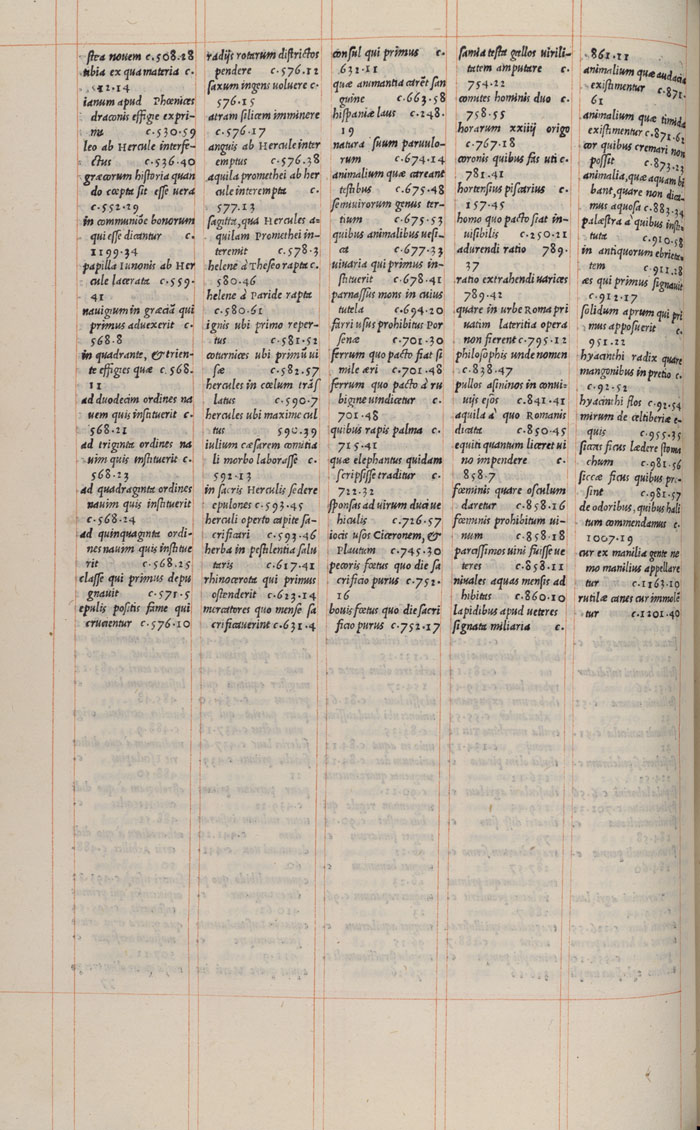 stra nouem c.508.28
tibia ex qua materia c.
512.14
ianum apud Phœnices
draconis effigie expri-
mi c.530.59
leo ab Hercule interfe-
ctus c.536.40
græcorum historia quan
do cœpta sit esse uera
c.552.29
in communiōe bonorum
qui esse dicantur c.
1199.34
papilla Iunonis ab Her
cule lacerata c.559.
41
nauigium in græciā qui
primus aduexerit c.
568.8
in quadrante, & trien-
te effigies quæ c.568.
11
ad duodecim ordines na
uem quis instituerit c.
568.21
ad triginta ordines na
uim quis instituerit c.
568.23
ad quadraginta ordines
nauim quis instituerit
c.568.24
ad quinquaginta ordi-
nes nauim quis institue
rit c.568.25
classe qui primus depu
gnauit c.571.5
epulis positis fame qui
crucientur c.576.10
radijs rotarum districtos
pendere c.576.12
saxum ingens uoluere c.
576.15
atram silicem imminere
c.576.17
anguis ab Hercule inter
emptus c.576.38
aquila promethei ab her
cule interempta c.
577.13
sagitta, qua Hercules a-
quilam Promethei in-
teremit c.578.3
helene à Theseo rapta c.
580.46
helene à Paride rapta
c.580.61
ignis ubi primo reper-
tus c.581.52
coturnices ubi primū ui
sæ c.582.57
hercules in cœlum trās
latus c.590.7
hercules ubi maxime cul
tus 590.39
iulium cæsarem comitia
li morbo laborasse c.
592.13
in sacris Herculis sedere
epulones c.593.45
herculi operto capite sa-
crificari c.593.46
herba in pestilentia salu
taris c.617.41
rhinocerota qui primus
ostenderit c.623.14
mercatores quo mense sa
crificauerint c.631.4
consul qui primus c.
631.11
quæ animantia carēt san
guine c.663.58
hispaniæ laus c.248.
19
natura suum paruulo-
rum c.674.14
animalium quæ careant
testibus c.675.48
semuirorum genus ter-
tium c.675.53
quibus animalibus uesi-
ca c.677.33
uiuaria qui primus in-
stituerit c.678.41
parnassus mons in cuius
tutela c.694.20
farri usus prohibitus Por
senæ c.701.30
ferrum quo pacto fiat si
mile æri c.701.48
ferrum quo pacto à ru
bigine uindicetur c.
701.48
quibus rapis palma c.
715.41
quæ elephantus quidam
scripsisse traditur c.
722.32
sponsas ad uirum duci ue
hiculis c.726.57
iocis usos Ciceronem, &
Plautum c.745.30
pecoris fœtus quo die sa
crificio purus c.752.
16
bouis fœtus quo die sacri
ficio purus c.752.17
samia testa gallos uirili-
tatem amputare c.
754.22
comites hominis duo c.
758.55
horarum xxiiij origo
c.767.18
coronis quibus fas uti c.
781.41
hortensius piscarius c.
157.45
homo quo pacto fiat in-
uisibilis c.250.21
adurendi ratio 789.
37
ratio extrahendi uarices
789.42
quare in urbe Roma pri
uatim lateritia opera
non fierent c.795.12
philosophis unde nomen
c.838.47
pullos asininos in conui-
uijs esos c.841.41
aquila à quo Romanis
dicata c.850.45
equiti quantum liceret ui
no impendere c.
858.7
fœminis quare osculum
daretur c.858.16
fœminis prohibitum ui-
num c.858.18
parcissimos uini fuisse ue
teres c.858.11
niuales aquas mensis ad
hibitas c.860.10
lapidibus apud ueteres
signata miliaria c.
861.11
animalium quæ audacia
existimentur c.871.
61
animalium quæ timida
existimentur c.871.62
cor quibus cremari non
possit c.873.23
animalia, quæ aquam bi
bant, quare non dica-
mus aquosa c.883.34
palæstra à quibus insti-
tuta c.910.58
in antiquorum ebrieta-
tem c.911.28
æs qui primus signauit
c.912.17
solidum aprum qui pri
mus apposuerit c.
951.22
hyacinthi radix quare
mangonibus in pretio c.
c.92.52
hyacinthi flos c.92.54
mirum de celtiberiæ e-
quis c.955.35
siccas ficus lædere stoma
chum c.981.56
siccæ ficus quibus pro-
sint c.981.57
de odoribus, quibus hali
tum commendamus c.
1007.19
cur ex manilia gente ne
mo manilius appellare
tur c.1163.10
rutilæ canes cur immolē
tur c.1201.40